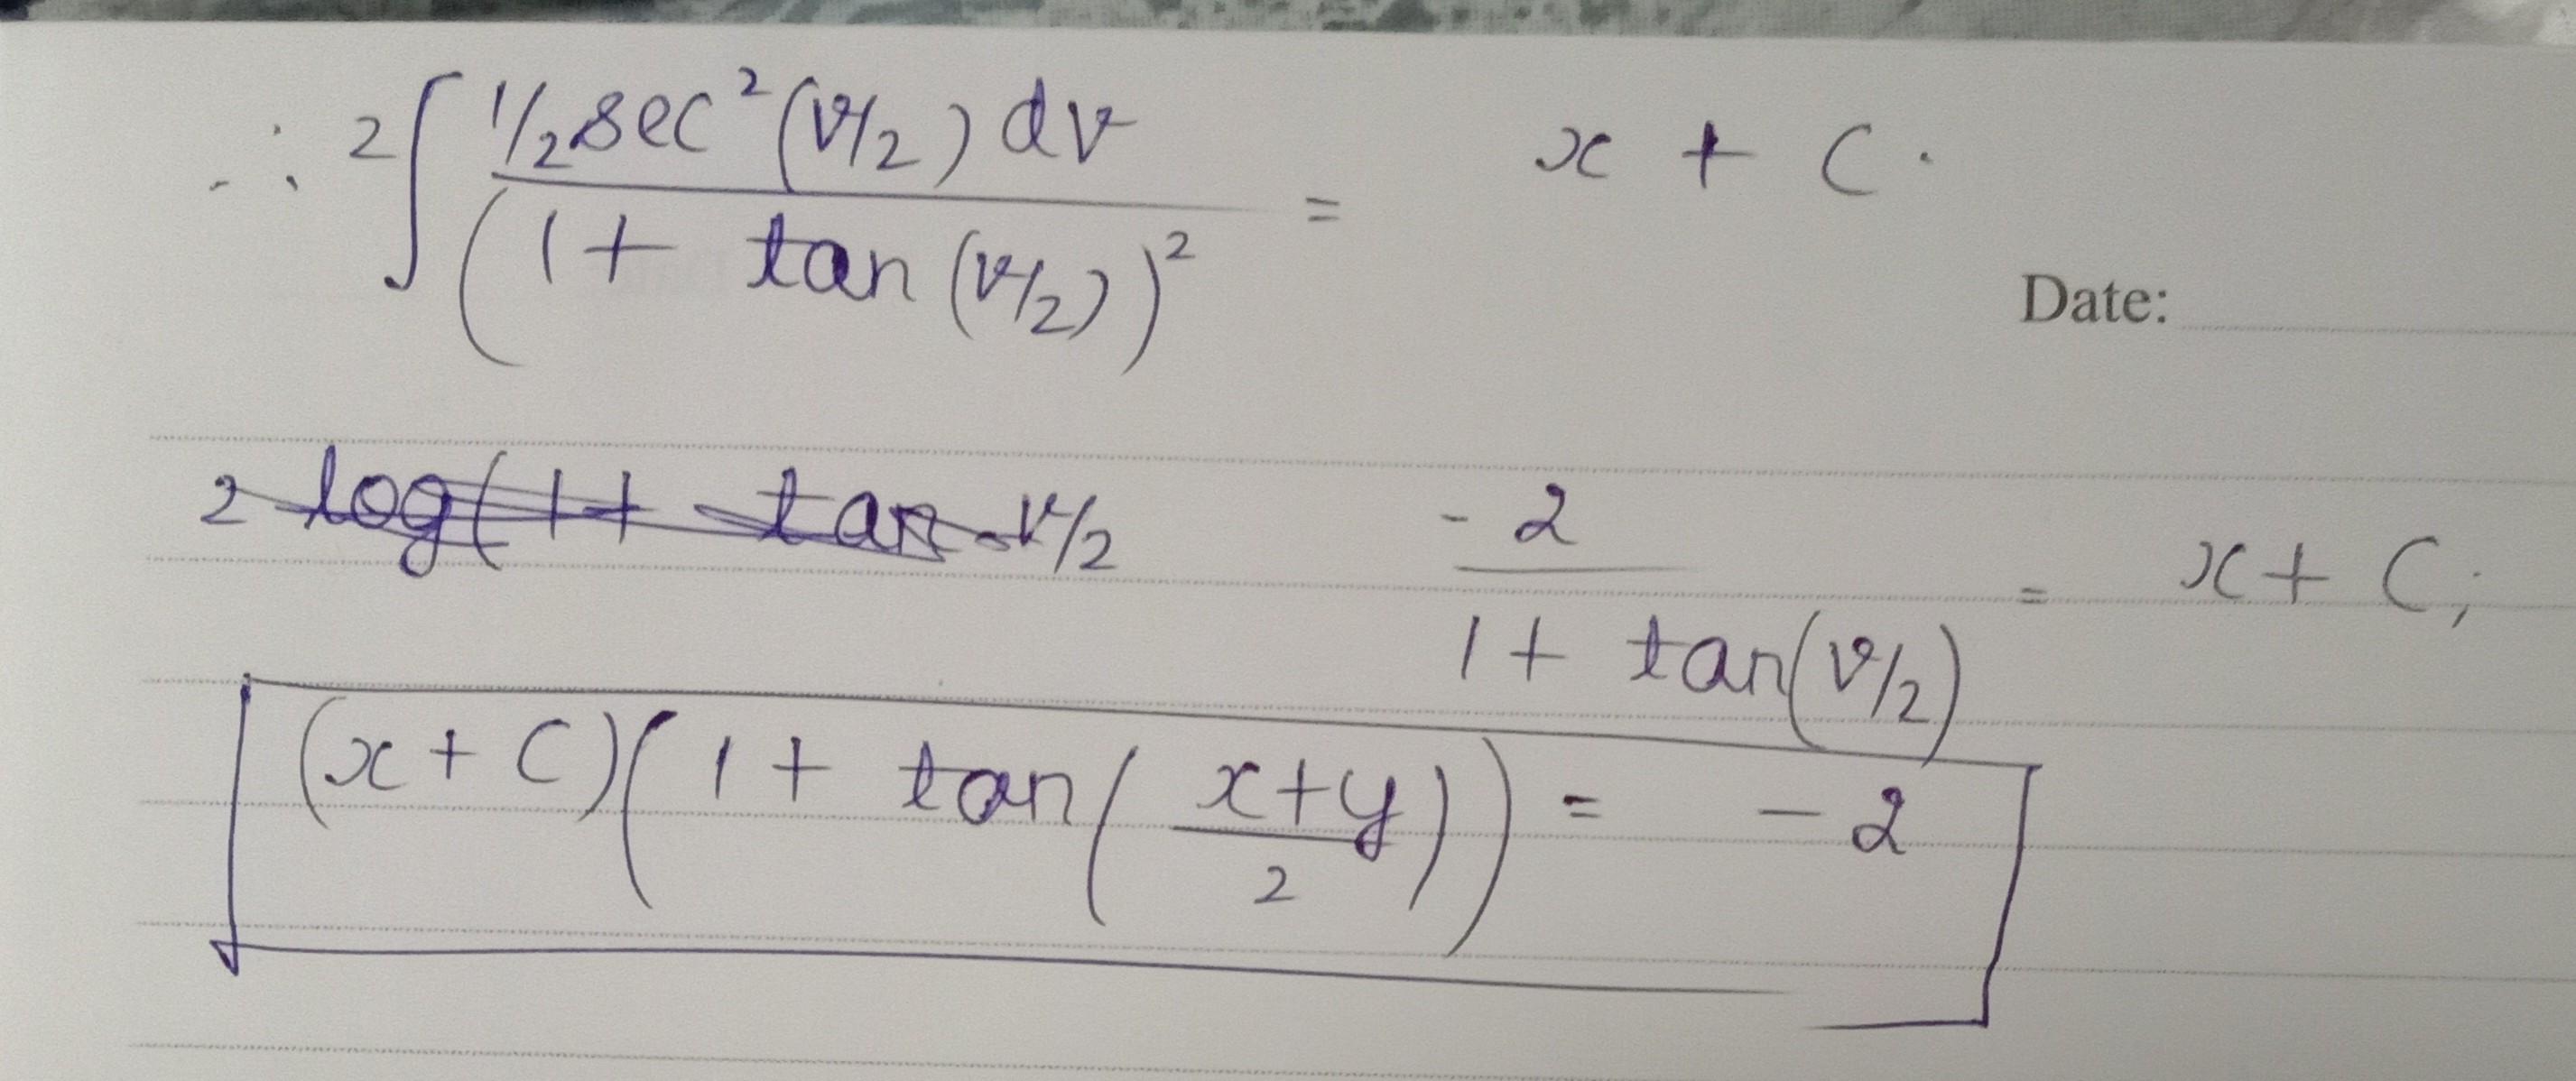 ∴ 2∫ 1/2 sec²(v/2) dv / (1 + tan(v/2))² = x + C.
Date:
2 log(1 + tan v/2 -2 / (1 + tan(v/2)) = x + C;
(x + C)(1 + tan((x+y)/2)) = -2